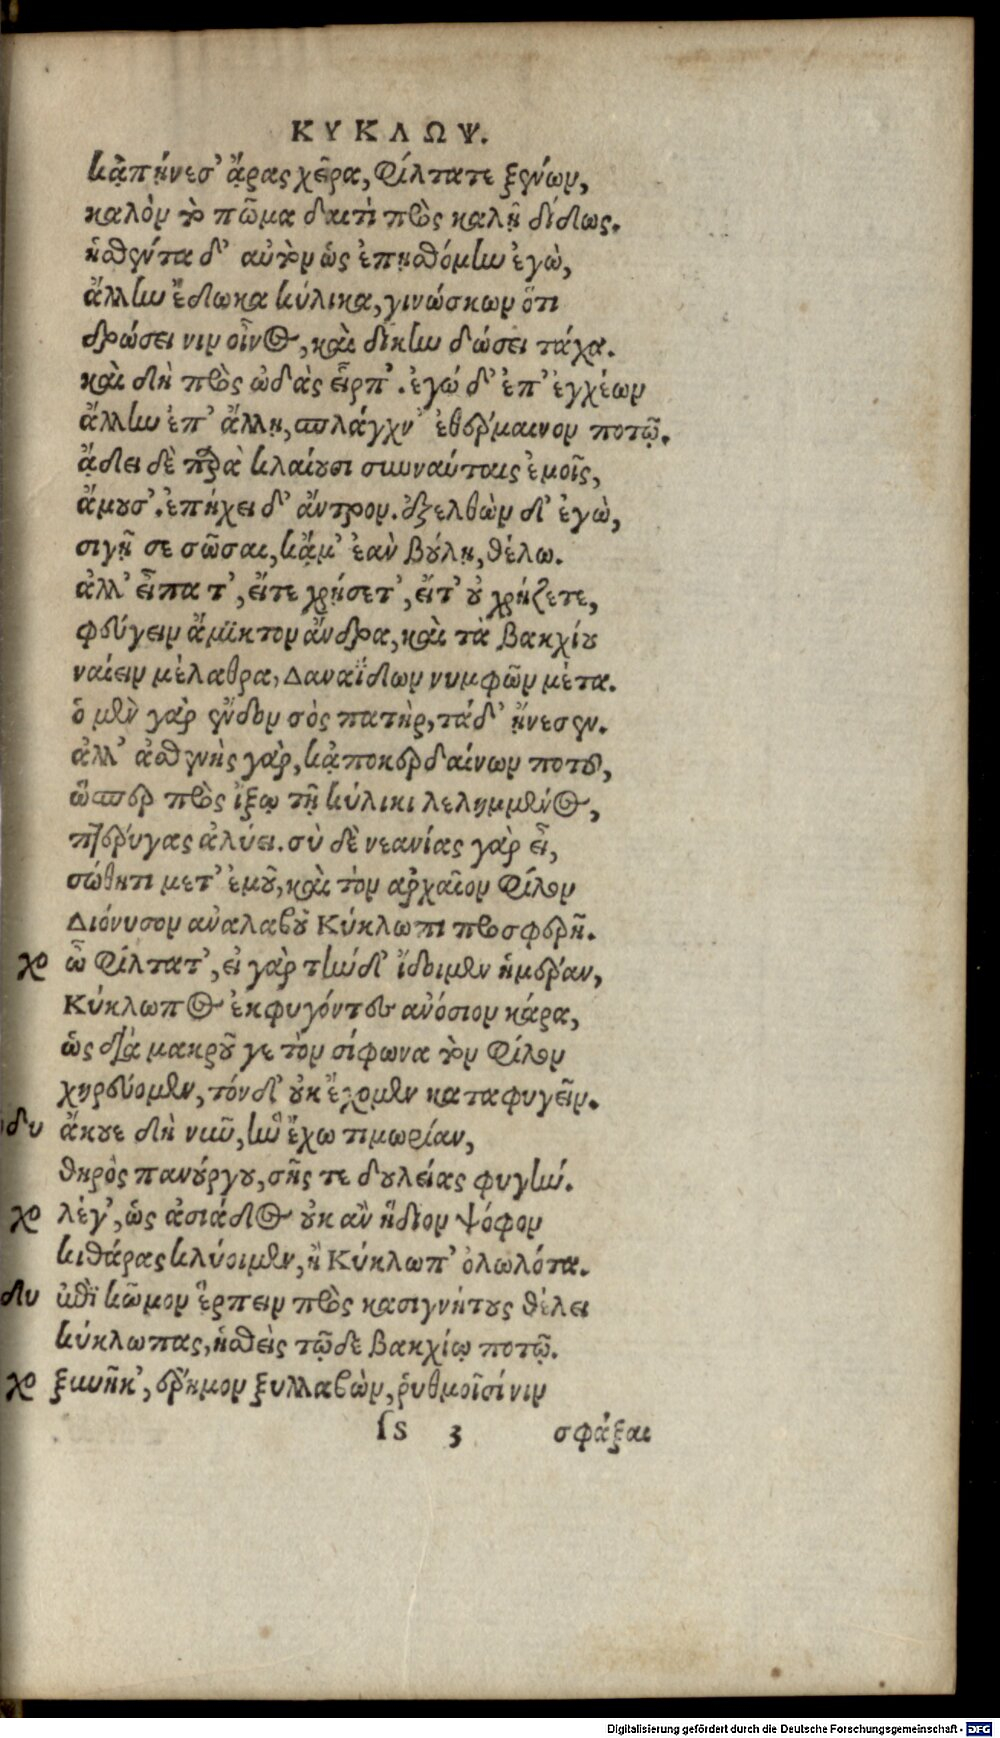 ΚΥΚΛΩΨ.
κᾀπῄνεσ' ἄρας χεῖρα, Φίλτατε ξένων,
καλὸν τὸ πῶμα δαιτὶ πρὸς καλῇ δίδως.
ἡσθέντα δ' αὐτὸν ὡς ἐπῃσθόμην ἐγὼ,
ἄλλην ἔδωκα κύλικα, γινώσκων ὅτι
τρώσει νιν οἶνος, καὶ δίκην δώσει τάχα.
καὶ δὴ πρὸς ᾠδὰς εἷρπ'. ἐγώ δ' ἐπ' ἐγχέων
ἄλλην ἐπ' ἄλλῃ, σπλάγχν' ἐθέρμαινον ποτῷ.
ᾄδει δὲ παρὰ κλαίουσι συνναύταις ἐμοῖς,
ἄμουσ'. ἐπήχει δ' ἄντρον. ἐξελθὼν δ' ἐγὼ,
σιγῇ σε σῶσαι, κᾄμ' ἐὰν βούλῃ, θέλω.
ἀλλ' εἶπατ', εἴτε χρήσετ', εἴτ' οὐ χρήζετε,
φεύγειν ἄμϊκτον ἄνδρα, καὶ τὰ Βακχίου
ναίειν μέλαθρα, Δαναΐδων νυμφῶν μέτα.
ὁ μὲν γὰρ ἔνδον σὸς πατὴρ, τάδ' ᾔνεσεν.
ἀλλ' ἀσθενὴς γὰρ, κᾀποκερδαίνων ποτοῦ,
ὥσπερ πρὸς ἰξῷ τῇ κύλικι λελημμένος,
πτέρυγας ἀλύει. σὺ δὲ νεανίας γὰρ εἶ,
σώθητι μετ' ἐμοῦ, καὶ τὸν ἀρχαῖον Φίλον
Διόνυσον ἀναλαβοῦ Κύκλωπι προσφερῆ.
χο ὦ Φίλτατ', εἰ γὰρ τήνδ' ἴδοιμεν ἡμέραν,
Κύκλωπος ἐκφυγόντες ἀνόσιον κάρα,
ὡς διὰ μακροῦ γε τὸν σίφωνα τὸν Φίλον
χηρεύομεν, τόνδ' οὐκ ἔχομεν καταφυγεῖν.
οδυ ἄκουε δὴ νῦν, ἣν ἔχω τιμωρίαν,
θηρὸς πανούργου, σῆς τε δουλείας φυγήν.
χο λέγ', ὡς ἀσιάδος οὐκ ἂν ἥδιον ψόφον
κιθάρας κλύοιμεν, ἢ Κύκλωπ' ὀλωλότα.
δυ ἐπὶ κῶμον ἕρπειν πρὸς κασιγνήτους θέλει
κύκλωπας, ἡσθεὶς τῷδε Βακχίῳ ποτῷ.
χο ξυνῆκ', ἔρημον ξυλλαβὼν, ῥυθμοῖσί νιν
ſs 3 σφάξαι
Digitalisierung gefördert durch die Deutsche Forschungsgemeinschaft - DFG